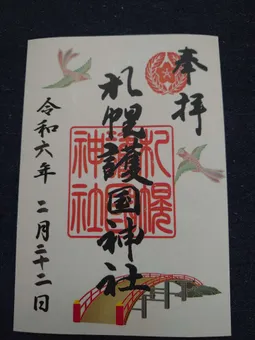 奉拝
札幌護国神社
札幌護国神社
令和六年 二月二十二日